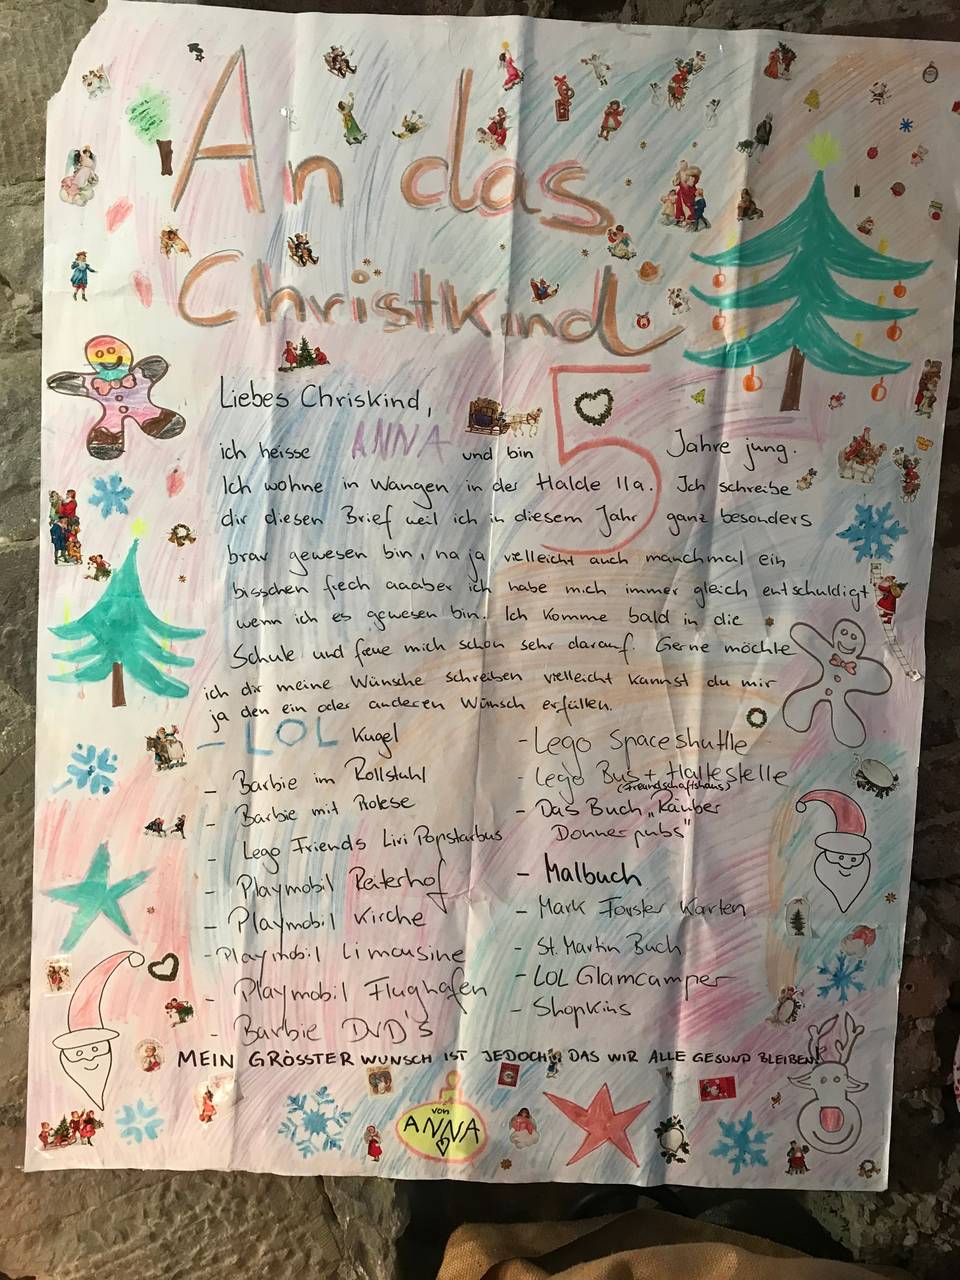 An das
Christkind
Liebes Chriskind,
ich heisse ANNA und bin 5 Jahre jung.
Ich wohne in Wangen in der Halde 11a. Ich schreibe
dir diesen Brief weil ich in diesem Jahr ganz besonders
brav gewesen bin, na ja vielleicht auch manchmal ein
bisschen frech aaaber ich habe mich immer gleich entschuldigt
wenn ich es gewesen bin. Ich komme bald in die
Schule und freue mich schon sehr darauf. Gerne möchte
ich dir meine Wünsche schreiben vielleicht kannst du mir
ja den ein oder anderen Wunsch erfüllen.
- LOL Kugel
- Barbie im Rollstuhl
- Barbie mit Protese
- Lego Friends Livi Popstarbus
- Playmobil Reiterhof
- Playmobil Kirche
- Playmobil Limousine
- Playmobil Flughafen
- Barbie DVD's
- Lego Spaceshuttle
- Lego Bus + Haltestelle
(Freundschaftshaus)
- Das Buch „Räuber
Donnerpubs"
- Malbuch
- Mark Forster Karten
- St. Martin Buch
- LOL Glamcamper
- Shopkins
MEIN GRÖSSTER WUNSCH IST JEDOCH, DAS WIR ALLE GESUND BLEIBEN!
von
ANNA